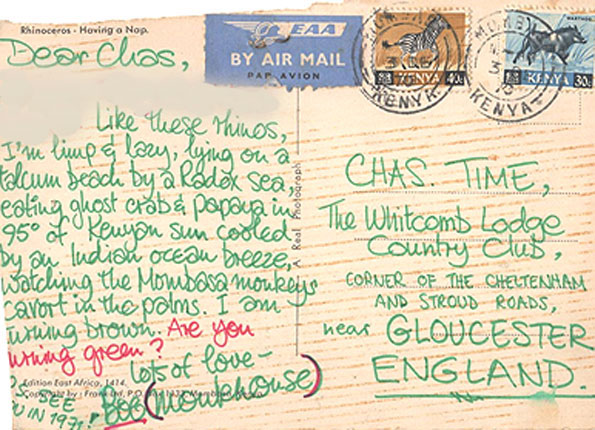 Rhinoceros - Having a Nap.
Dear Chas,
Like these rhinos,
I'm limp & lazy, lying on a
talcum beach by a Radox sea,
eating ghost crab & papaya in
95° of Kenyan sun cooled
by an Indian ocean breeze,
watching the Mombasa monkeys
cavort in the palms. I am
turning brown. Are you
turning green?
Lots of love-
Bob (Monkhouse)
SEE
IN 1971!
Edition East Africa, 1414.
Copyright by: Frank Ltd, P.O. Box
A Real Photograph
EAA
BY AIR MAIL
PAR AVION
KENYA 40c
KENYA
WARTHOG
KENYA 30c
KENYA
CHAS. TIME,
The Whitcomb Lodge
Country Club,
CORNER OF THE CHELTENHAM
AND STROUD ROADS,
near GLOUCESTER
ENGLAND.